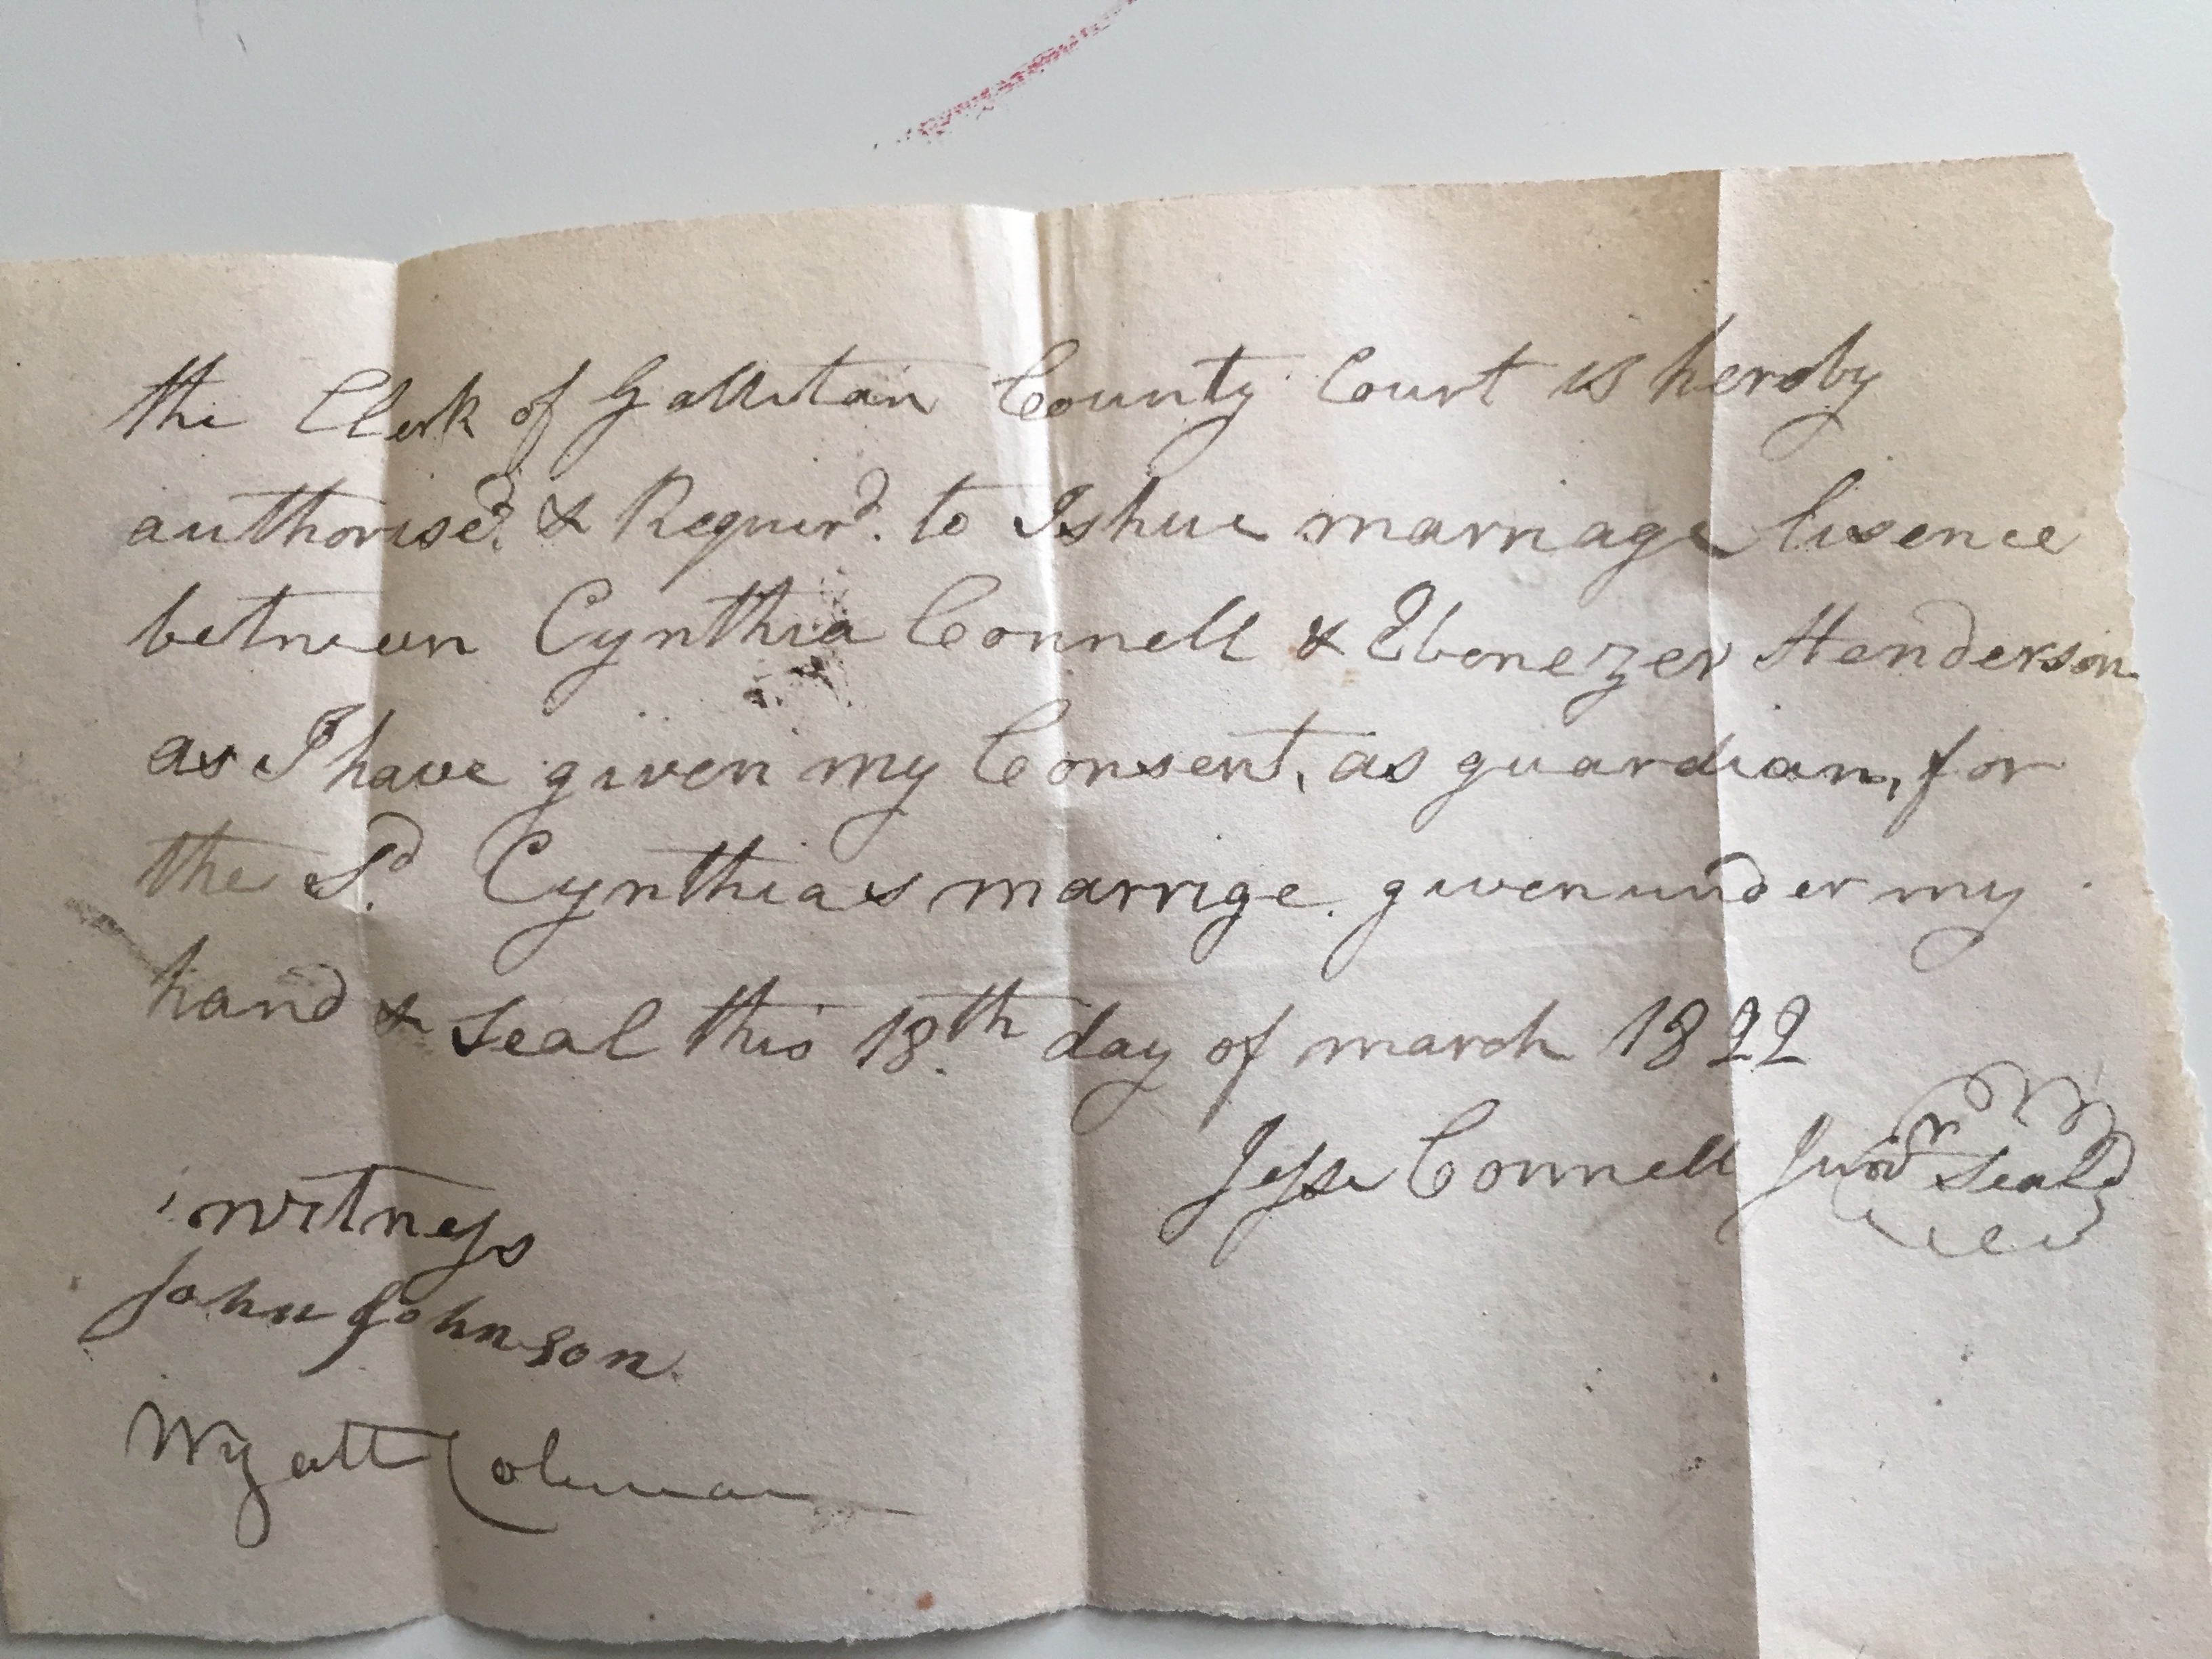 the Clerk of Gallitan County Court is heroby
authorisd. & Requird. to Ishue marriage lisence
between Cynthia Connell & Ebenezer Henderson
as I have given my Consent, as guardian, for
the Sd. Cynthias marrige. given under my
hand & Seal this 18th day of march 1822
Jesse Connell Junr Seal
witness
John Johnson.
Wyatt Coleman